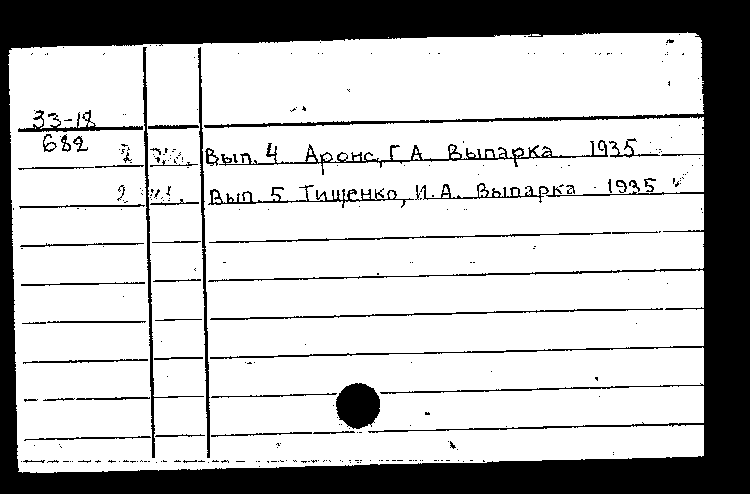 33-18
682
2 Вып. 4 Аронс, Г.А. Выпарка 1935
2 Вып. 5 Тищенко, И.А. Выпарка 1935